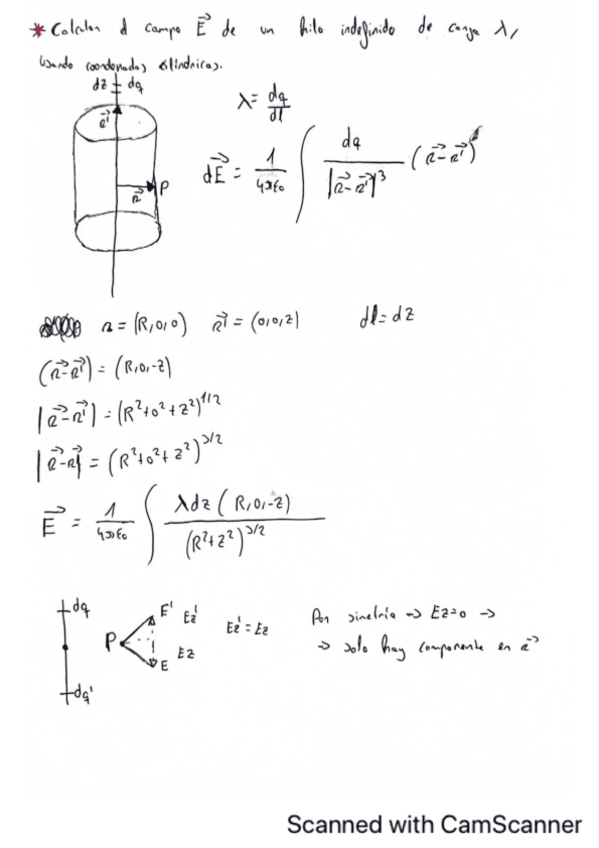 * Calcular el campo E⃗ de un hilo indefinido de carga λ,
usando coordenadas cilíndricas.
dz dq
λ = dq/dl
r⃗'
dE⃗ = 1/4πε₀ ∫ dq/|r⃗-r⃗'|³ (r⃗-r⃗')
r⃗ P
r = (R,0,0) r⃗' = (0,0,z) dl = dz
(r⃗-r⃗') = (R,0,-z)
|r⃗-r⃗'| = (R²+0²+z²)^1/2
|r⃗-r| = (R²+0²+z²)^3/2
E⃗ = 1/4πε₀ ∫ λdz (R,0,-z)/(R²+z²)^3/2
dq E' Ez' Ez' = Ez Por simetría → Ez=0 →
P Ez → solo hay componente en r⃗
E
dq'
Scanned with CamScanner